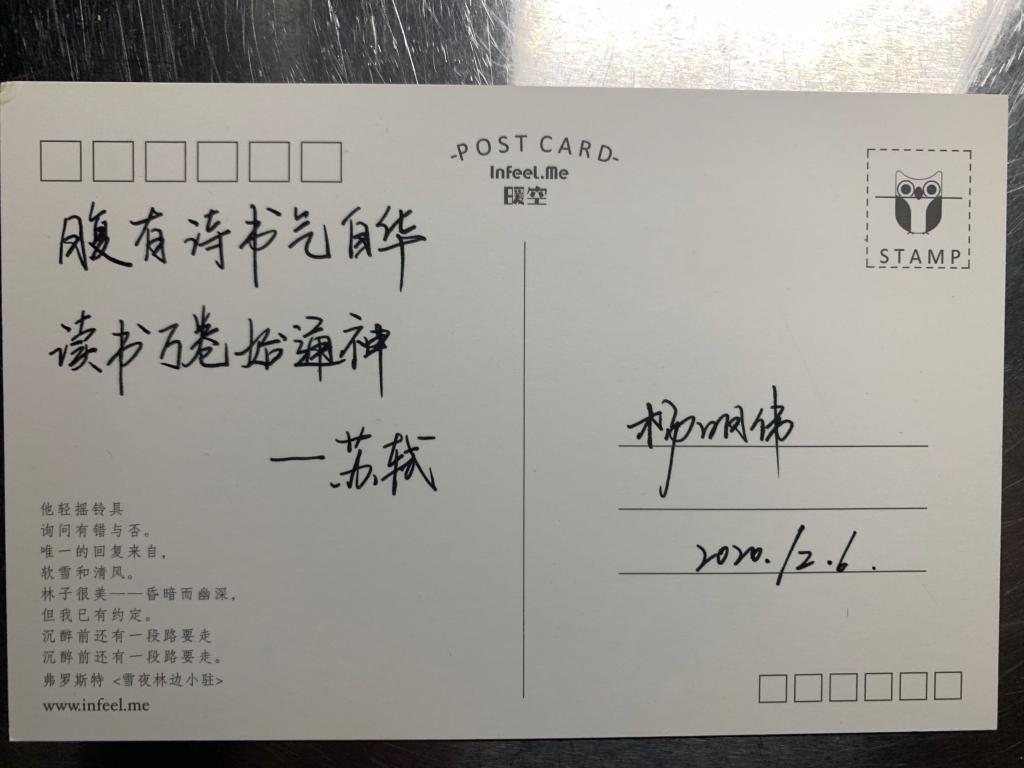 -POST CARD-
Infeel.Me
暖空
STAMP
腹有诗书气自华
读书万卷始通神
—苏轼
他轻摇铃具
询问有错与否。
唯一的回复来自，
软雪和清风。
林子很美——昏暗而幽深，
但我已有约定。
沉醉前还有一段路要走
沉醉前还有一段路要走。
弗罗斯特 <雪夜林边小驻>
www.infeel.me
杨明伟
2020.12.6.